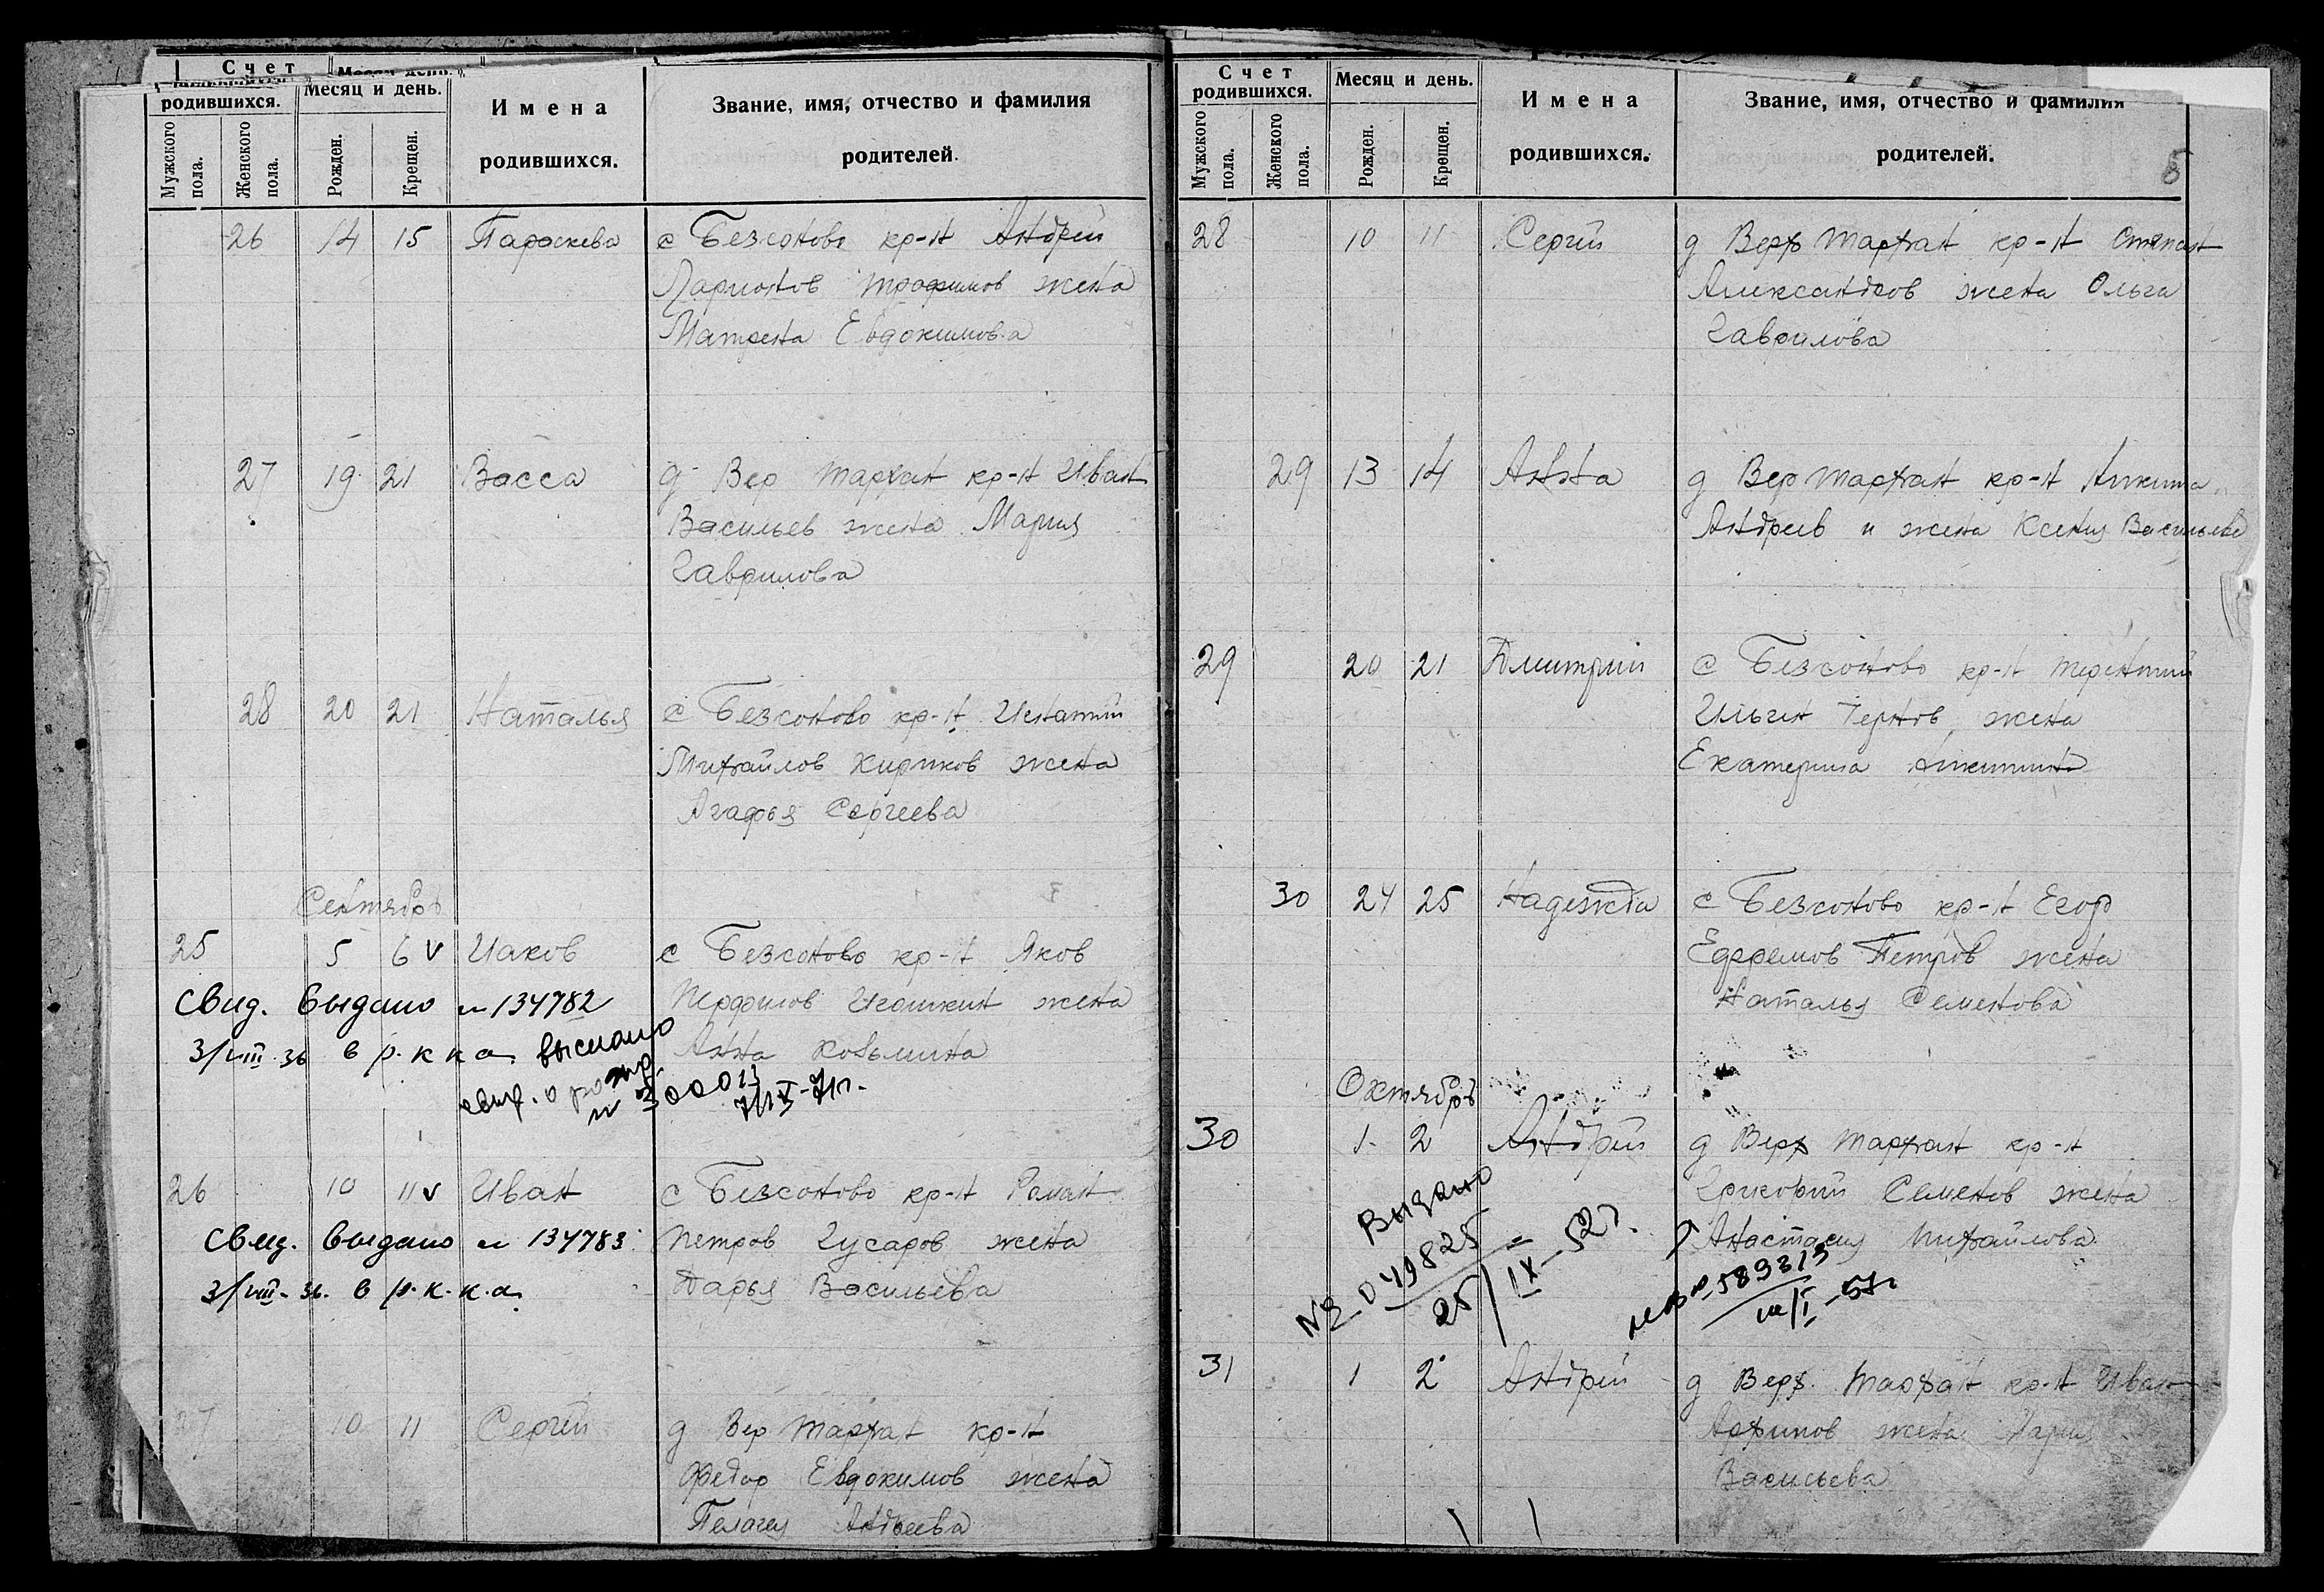 Счет
Месяц день.
родившихся.
Месяц и день.
Имена
родившихся.
Звание, имя, отчество и фамилия
родителей.
Мужского пола.
Женского пола.
Рожден.
Крещен.
26 14 15 Параскева с Безсоново кр-н Андрей
Ларионов Трофимов жена
Матрена Евдокимова
27 19 21 Васса д Вер Тархан кр-н Иван
Васильев жена Мария
Гаврилова
28 20 21 Наталья с Безсоново кр-н Игнатий
Михайлов Кириков жена
Агафья Сергеева
Сентябрь
25 5 6 v Иаков с Безсоново кр-н Яков
Перфилов Игошкин жена
Анна Козьмина
Свид. выдано № 134782
3/VIII 36 в р.к.к.а. выслано
свид. о рожд.
№ 300013
7/IX-71г.
26 10 11 v Иван с Безсоново кр-н Роман
Петров Гусаров жена
Дарья Васильева
Свид. выдано № 134783
3/VIII-36. в р.к.к.а.
27 10 11 Сергей д Вер Тархан кр-н
Федор Евдокимов жена
Пелагея Андреева
Счет
родившихся.
Месяц и день.
Имена
родившихся.
Звание, имя, отчество и фамилия
родителей.
Мужского пола.
Женского пола.
Рожден.
Крещен.
28 10 11 Сергий д Верх Тархан кр-н Степан
Александров жена Ольга
Гаврилова
29 13 14 Анна д Вер Тархан кр-н Аникита
Андреев и жена Ксения Васильева
29 20 21 Дмитрий с Безсоново кр-н Терентий
Ильин Чернов жена
Екатерина Аникитина
30 24 25 Надежда с Безсоново кр-н Егор
Ефремов Петров жена
Наталья Семенова
Октябрь
30 1 2 Андрей д Верх Тархан кр-н
Григорий Семенов жена
Анастасия Михайлова
Выдано
№ 049825
25/IX-52г.
589313
31 1 2 Андрей д Верх. Тархан кр-н Иван
Архипов жена Мария
Васильева